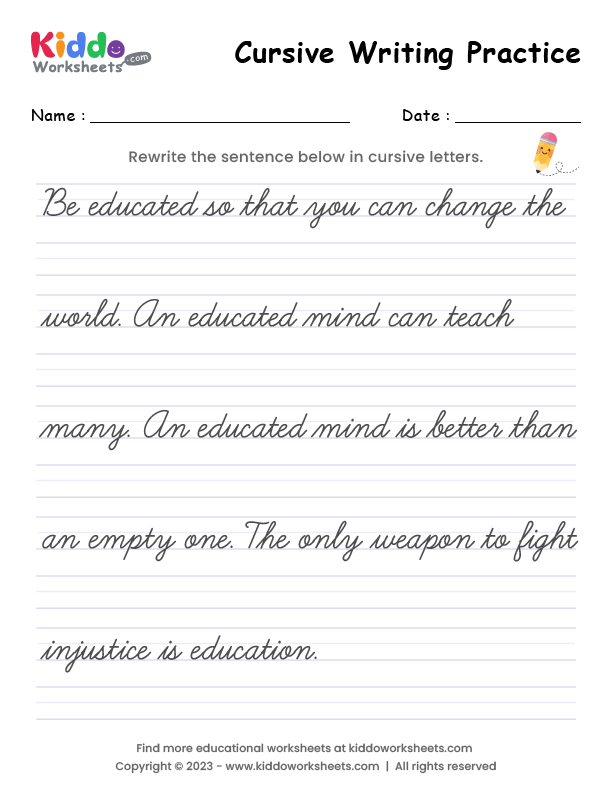 Kiddo
Worksheets .com
Cursive Writing Practice
Name :
Date :
Rewrite the sentence below in cursive letters.
Be educated so that you can change the
world. An educated mind can teach
many. An educated mind is better than
an empty one. The only weapon to fight
injustice is education.
Find more educational worksheets at kiddoworksheets.com
Copyright © 2023 - www.kiddoworksheets.com | All rights reserved